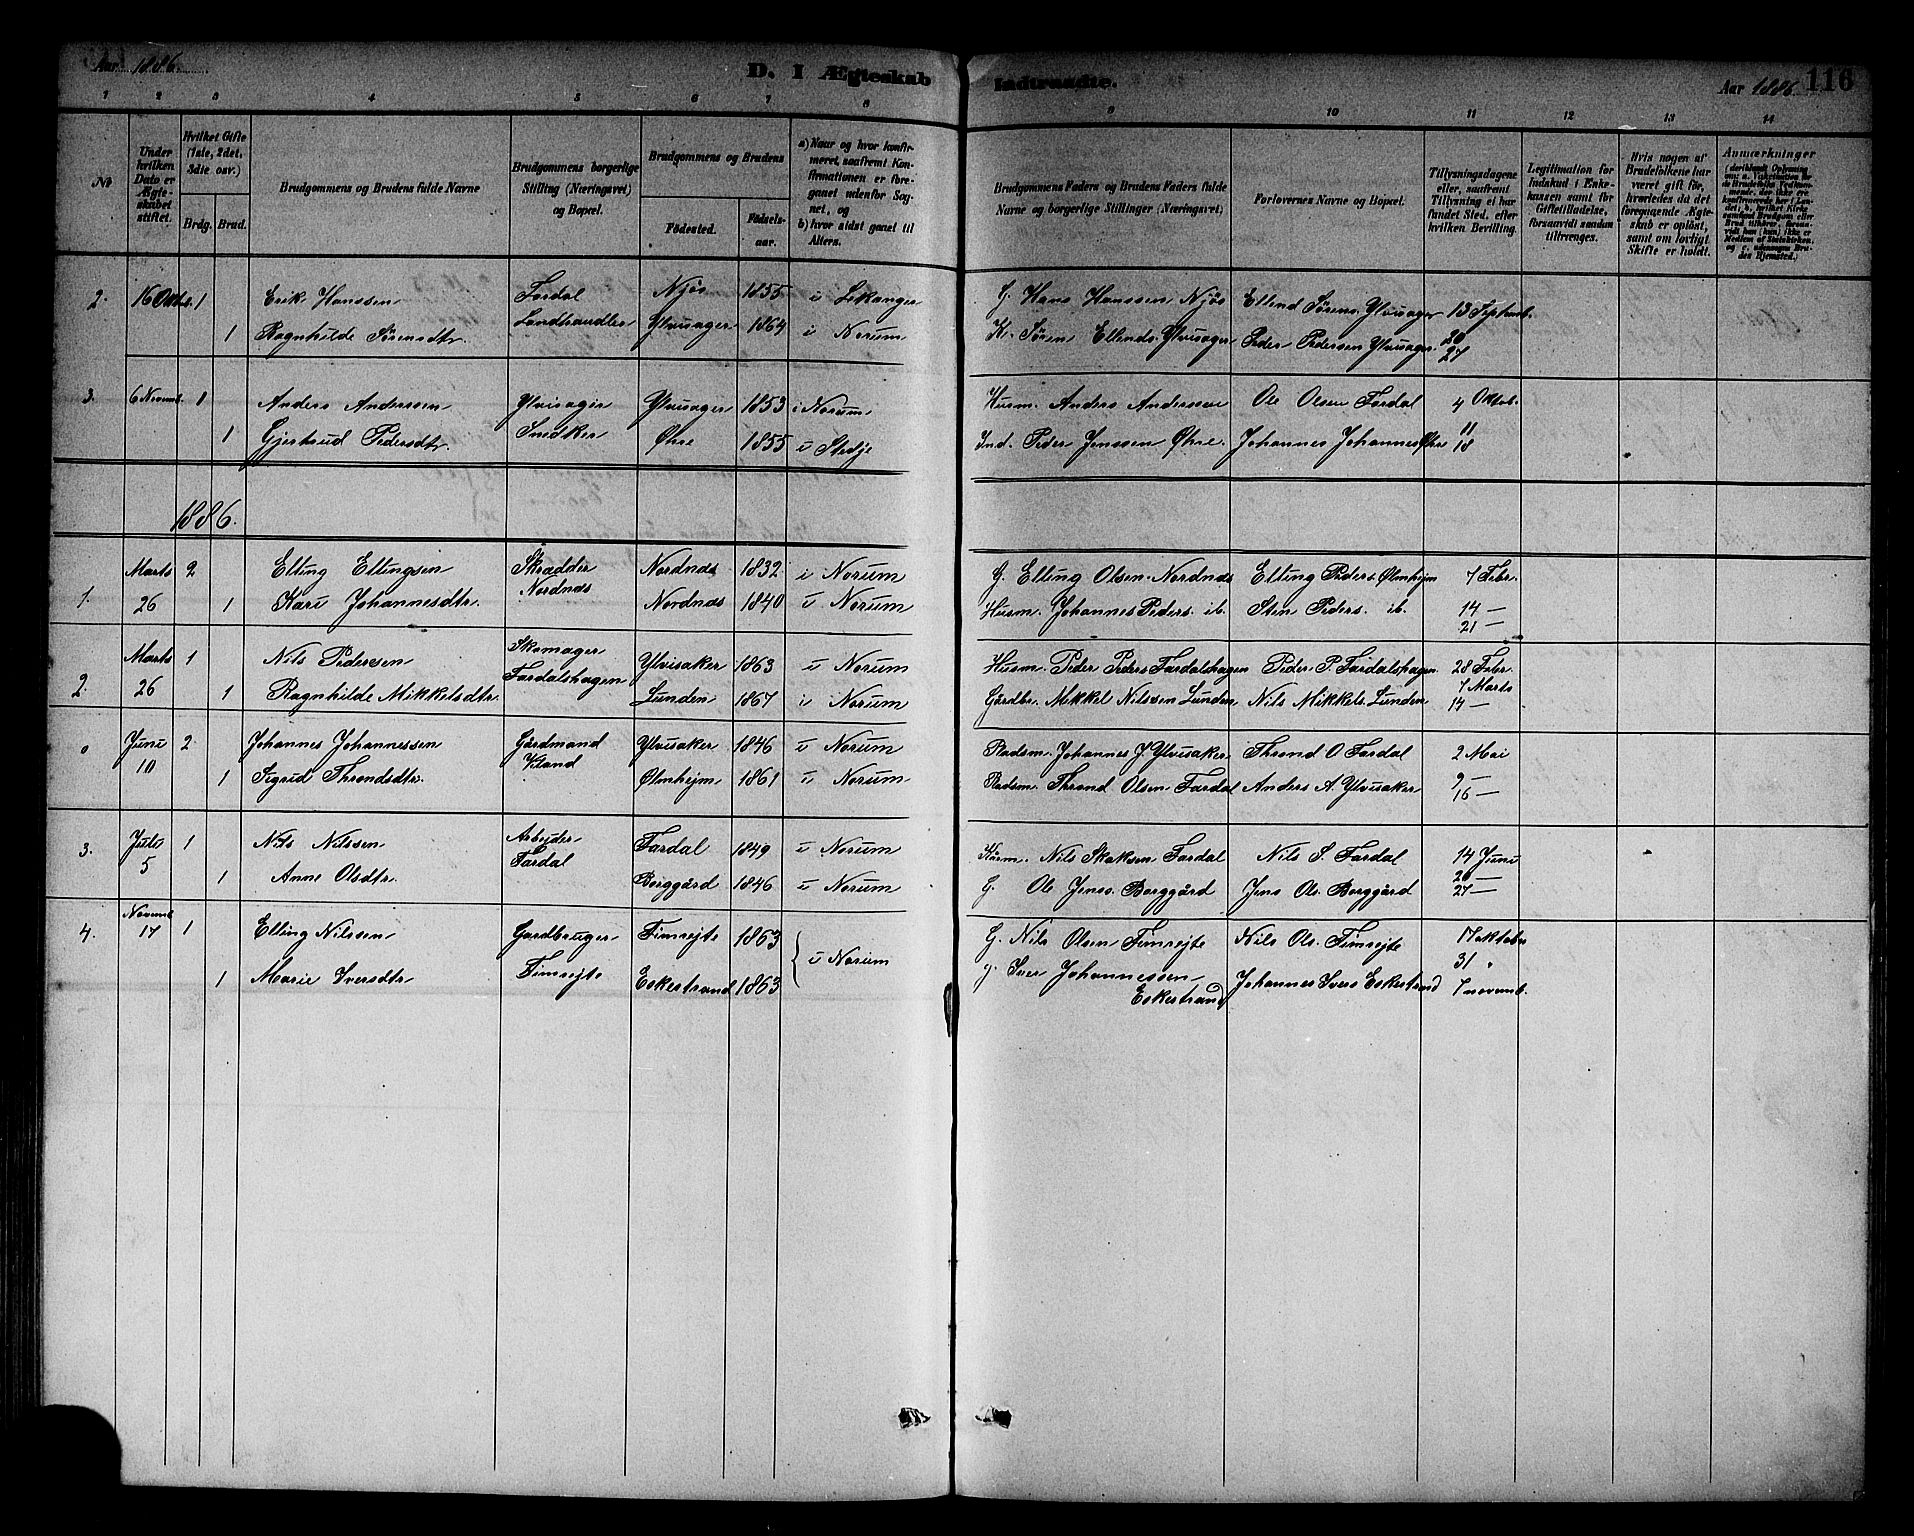 Aar 1886.
D. I Ægteskab Indtraadte.
Aar 1886. 116
1 2 3 4 5 6 7 8 9 10 11 12 13 14
No
Under hvilken Dato er Ægteskabet stiftet.
Hvilket Gifte (1ste, 2det, 3die osv.)
Brdg. Brud.
Brudgommens og Brudens fulde Navne
Brudgommens borgerlige Stilling (Næringsvei) og Bopæl.
Brudgommens og Brudens
Fødested. Fødselsaar.
a) Naar og hvor konfirmeret, saafremt Konfirmationen er foregaaet udenfor Sognet, og
b) hvor sidst gaaet til Alters.
Brudgommens Faders og Brudens Faders fulde Navne og borgerlige Stillinger (Næringsvei)
Forlovernes Navne og Bopæl.
Tillysningsdagene eller, saafremt Tillysning ei har fundet Sted, efter hvilken Bevilling.
Legitimation for Indskud i Enkekassen samt for Giftetilladelse, forsaavidt saadan tiltrænges.
Hvis nogen af Brudefolkene har været gift før, hvorledes da det foregaaende Ægteskab er opløst, samt om lovligt Skifte er holdt.
Anmærkninger
2. 16 Oktb. 1 Erik Hanssen Fardal Njøs 1855 i Lekanger G. Hans Hanssen Njøs Ellend Sørens. Ylvisager 13 Septemb.
1 Ragnhilde Sørensdtr. Landhandler Ylvisager 1864 i Norum K. Søren Ellends. Ylvisager Peder Pedersen Ylvisager 20
27
3. 6 Novemb. 1 Anders Anderssen Ylvisager Ylvisager 1853 i Norum Husm. Anders Anderssen Ole Olsen Fardal 4 Oktob.
1 Gjertrud Pedersdtr. Snedker Øhre 1855 i Stedje Ind. Peder Jenssen Øhre. Johannes Johannes Øhre 11
18
1886.
1. Marts 26 2 Elling Ellingsen Skrædder Nordnæs 1832 i Norum G. Elling Olsen Nordnæs Elling Peders. Ølmhejm 7 Febr.
1 Kari Johannesdtr. Nordnæs Nordnæs 1840 i Norum Husm. Johannes Peders. ib. Sten Peders. ib. 14 —
21 —
2. Marts 26 1 Nils Pedersen Skomager Ylvisaker 1863 i Norum Husm. Peder Peders Fardalshagen Peder P. Fardalshagen 28 Febr.
1 Ragnhilde Mikkelsdtr. Fardalshagen Lunden 1867 i Norum Gårdbr. Mikkel Nilssen Lunden Nils Mikkels. Lunden 7 Marts
14 —
0 Juni 10 2 Johannes Johannessen Gårdmand Ylvisaker 1846 i Norum Pladsm. Johannes J Ylvisaker Thrond O Fardal 2 Mai
1 Sigrid Throndsdtr. Ølmhejm 1861 i Norum Pladsm. Thrond Olsen Fardal Anders A Ylvisaker 9 —
16 —
3. Juli 5 1 Nils Nilssen Arbejder Fardal 1849 i Norum Nils Skaksen Fardal Nils S. Fardal 14 Juni
1 Anne Olsdtr. Fardal Borggård 1846 i Norum G. Ole Jenss. Borggård Jens Ols. Borggård 20 —
27 —
4. Novemb 17 1 Elling Nilssen Gardbruger Fimrejte 1863 i Norum G. Nils Olsen Fimrejte Nils Ols. Fimrejte 17 oktober
31 "
1 Marie Iversdtr Fimrejte Eskestrand 1863 g. Iver Johannessen Eskestrand Johannes Ivers Eskestrand 7 novemb.